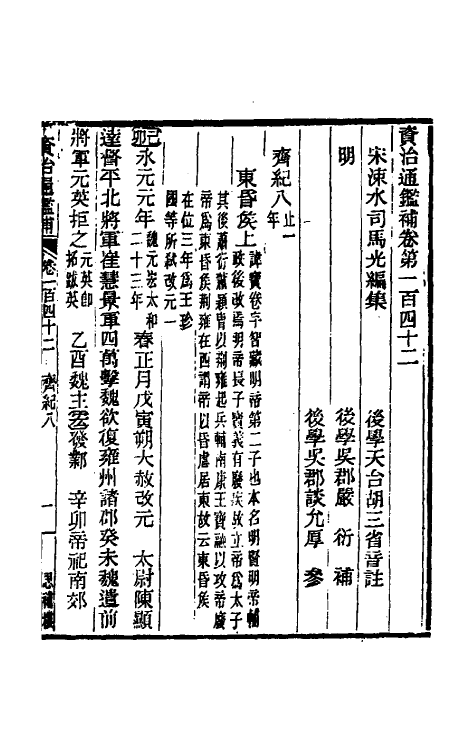 資治通鑑補卷第一百四十二
宋涑水司馬光編集
後學天台胡三省音註
明
後學吳郡嚴衍補
後學吳郡談允厚參
齊紀八止一年
東昏侯上諱寶卷字智藏明帝第二子也本名明賢明帝輔
政後改焉明帝長子寶義有廢疾故立帝爲太子
其後蕭衍蕭穎胄以荆雍起兵輔南康王寶融以攻帝廢
帝爲東昏侯荆雍在西謂帝以昏虐居東故云東昏侯
在位三年爲王珍
國等所弒改元一
己卯永元元年魏元宏太和二十三年春正月戊寅朔大赦改元 太尉陳顯
達督平北將軍崔慧景軍四萬擊魏欲復雍州諸郡癸未魏遣前
將軍元英拒之元英卽拓跋英 乙酉魏主宏發鄴 辛卯帝祀南郊
資治通鑑補 卷一百四十二 齊紀八 一 思補樓